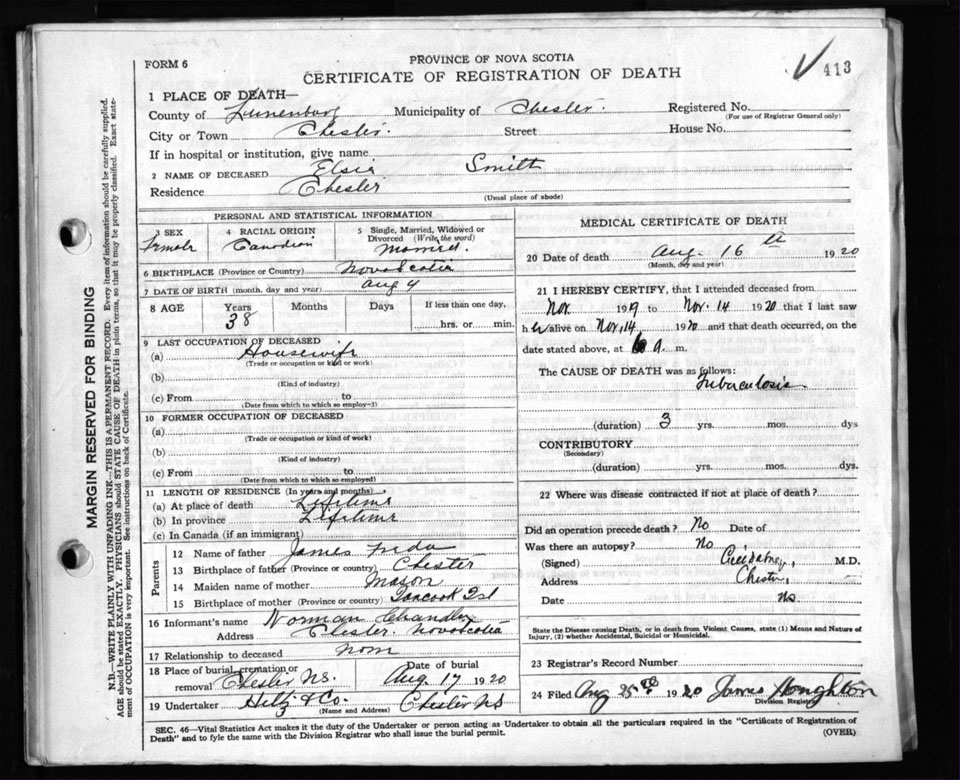 FORM 6
PROVINCE OF NOVA SCOTIA
CERTIFICATE OF REGISTRATION OF DEATH
413
1 PLACE OF DEATH—
County of Lunenburg Municipality of Chester. Registered No.
(For use of Registrar General only)
City or Town Chester. Street House No.
If in hospital or institution, give name
2 NAME OF DECEASED Elsie Smith
Residence Chester
(Usual place of abode)
PERSONAL AND STATISTICAL INFORMATION
3 SEX 4 RACIAL ORIGIN 5 Single, Married, Widowed or Divorced (Write the word)
Female Canadian Married.
6 BIRTHPLACE (Province or Country) Nova Scotia
7 DATE OF BIRTH (month, day and year) Aug 4
8 AGE Years Months Days If less than one day,
38 hrs. or min.
9 LAST OCCUPATION OF DECEASED
(a) Housewife
(Trade or occupation or kind of work)
(b)
(Kind of industry)
(c) From to
(Date from which to which so employ—)
10 FORMER OCCUPATION OF DECEASED
(a)
(Trade or occupation or kind of work)
(b)
(Kind of industry)
(c) From to
(Date from which to which so employed)
11 LENGTH OF RESIDENCE (In years and months)
(a) At place of death Lifetime
(b) In province Lifetime
(c) In Canada (if an immigrant)
Parents
12 Name of father James
13 Birthplace of father (Province or country) Chester
14 Maiden name of mother Mason
15 Birthplace of mother (Province or country) Tancook Isl
16 Informant's name Norman Chandler
Address Chester Nova Scotia
17 Relationship to deceased
18 Place of burial, cremation or removal Chester NS. Date of burial Aug. 17 1920
19 Undertaker Hiltz & Co. Chester NS
(Name and Address)
MEDICAL CERTIFICATE OF DEATH
20 Date of death Aug 16 th 1920
(Month, day and year)
21 I HEREBY CERTIFY, that I attended deceased from
Nov. 1919 to Nov. 14 1920 that I last saw
h er alive on Nov, 14 1920 and that death occurred, on the
date stated above, at 6 a. m.
The CAUSE OF DEATH was as follows:
Tuberculosis
(duration) 3 yrs. mos. dys
CONTRIBUTORY
(Secondary)
(duration) yrs. mos. dys.
22 Where was disease contracted if not at place of death?
Did an operation precede death? No Date of
Was there an autopsy? No
(Signed) M.D.
Address Chester,
Date NS
State the Disease causing Death, or in death from Violent Causes, state (1) Means and Nature of
Injury, (2) whether Accidental, Suicidal or Homicidal.
23 Registrar's Record Number
24 Filed Aug 25 1920 James Houghton
Division Registrar
SEC. 46—Vital Statistics Act makes it the duty of the Undertaker or person acting as Undertaker to obtain all the particulars required in the "Certificate of Registration of
Death" and to fyle the same with the Division Registrar who shall issue the burial permit.
(OVER)
MARGIN RESERVED FOR BINDING
N.B.—WRITE PLAINLY WITH UNFADING INK—THIS IS A PERMANENT RECORD. Every item of information should be carefully supplied.
AGE should be stated EXACTLY. PHYSICIANS should STATE CAUSE OF DEATH in plain terms, so that it may be properly classified. Exact state-
ment of OCCUPATION is very important. See instructions on back of Certificate.